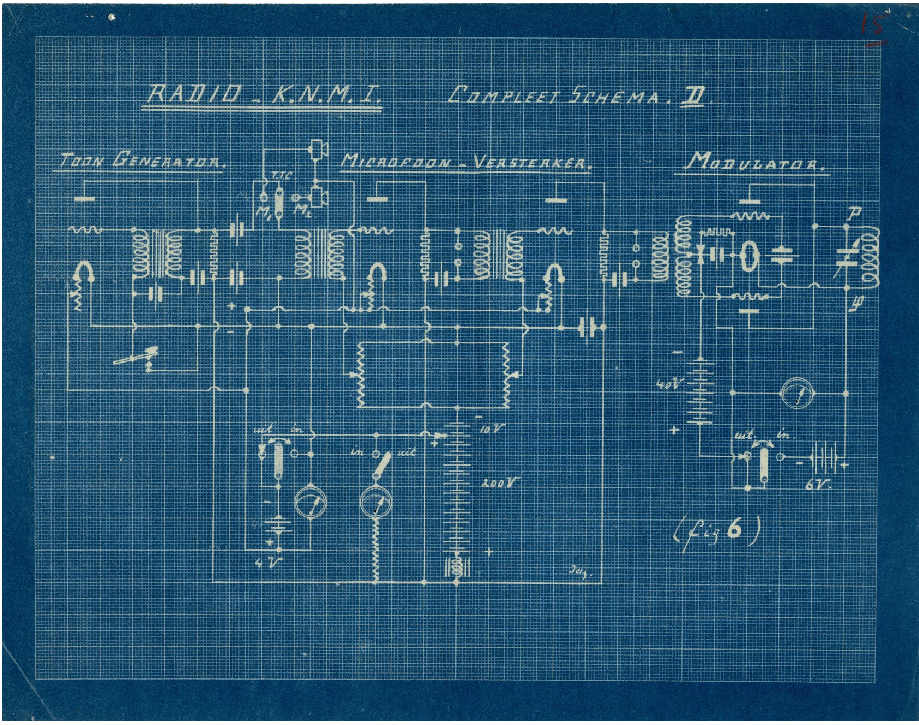 15
RADIO - K.N.M.I. COMPLEET SCHEMA. D.
TOON GENERATOR. MICROFOON - VERSTERKER. MODULATOR.
T.T.C
M₁ M₂
P
+
-
φ
-
40V
+
uit in
in uit
-
10V
+
200V
uit. in.
- +
6V.
-
+
4V
+
(fig 6)